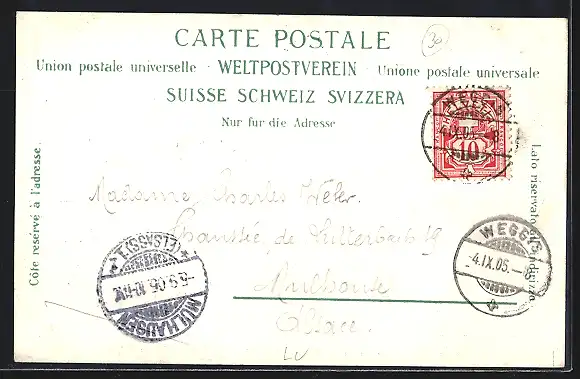 30
CARTE POSTALE
Union postale universelle · WELTPOSTVEREIN · Unione postale universale
SUISSE SCHWEIZ SVIZZERA
Nur für die Adresse
Côte réservé à l'adresse
Lato riservato
HELVETIA
10
WEGGIS
4.IX.05.
Madame Charles Weber
Chaussée de Lutterbach 19
Mulhouse
Alsace
MÜLHAUSEN
(ELSASS) 1
5.9.05
WEGGIS
4.IX.05.